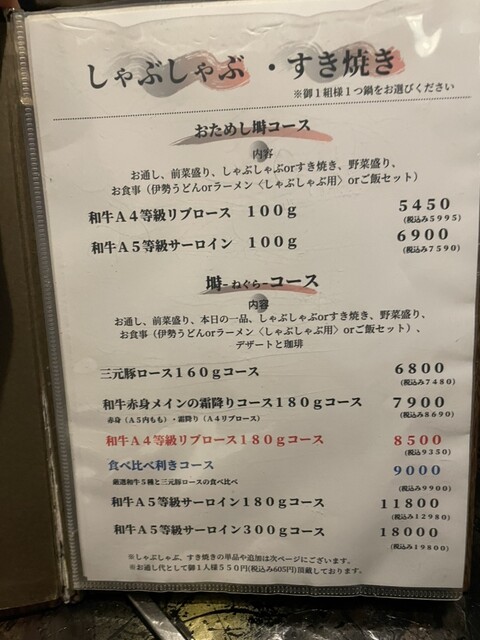 しゃぶしゃぶ ・すき焼き
※御1組様1つ鍋をお選びください
おためし塒コース
内容
お通し、前菜盛り、しゃぶしゃぶorすき焼き、野菜盛り、
お食事(伊勢うどんorラーメン〈しゃぶしゃぶ用〉orご飯セット)
和牛A4等級リブロース 100g 5450
(税込み5995)
和牛A5等級サーロイン 100g 6900
(税込み7590)
塒-ねぐら-コース
内容
お通し、前菜盛り、本日の一品、しゃぶしゃぶorすき焼き、野菜盛り、
お食事(伊勢うどんorラーメン〈しゃぶしゃぶ用〉orご飯セット)、
デザートと珈琲
三元豚ロース160gコース 6800
(税込み7480)
和牛赤身メインの霜降りコース180gコース 7900
赤身(A5内もも)・霜降り(A4リブロース) (税込み8690)
和牛A4等級リブロース180gコース 8500
(税込9350)
食べ比べ利きコース 9000
厳選和牛5種と三元豚ロースの食べ比べ (税込み9900)
和牛A5等級サーロイン180gコース 11800
(税込み12980)
和牛A5等級サーロイン300gコース 18000
(税込み19800)
※しゃぶしゃぶ、すき焼きの単品や追加は次ページにございます。
※お通し代として御1人様550円(税込み605円)頂戴しております。